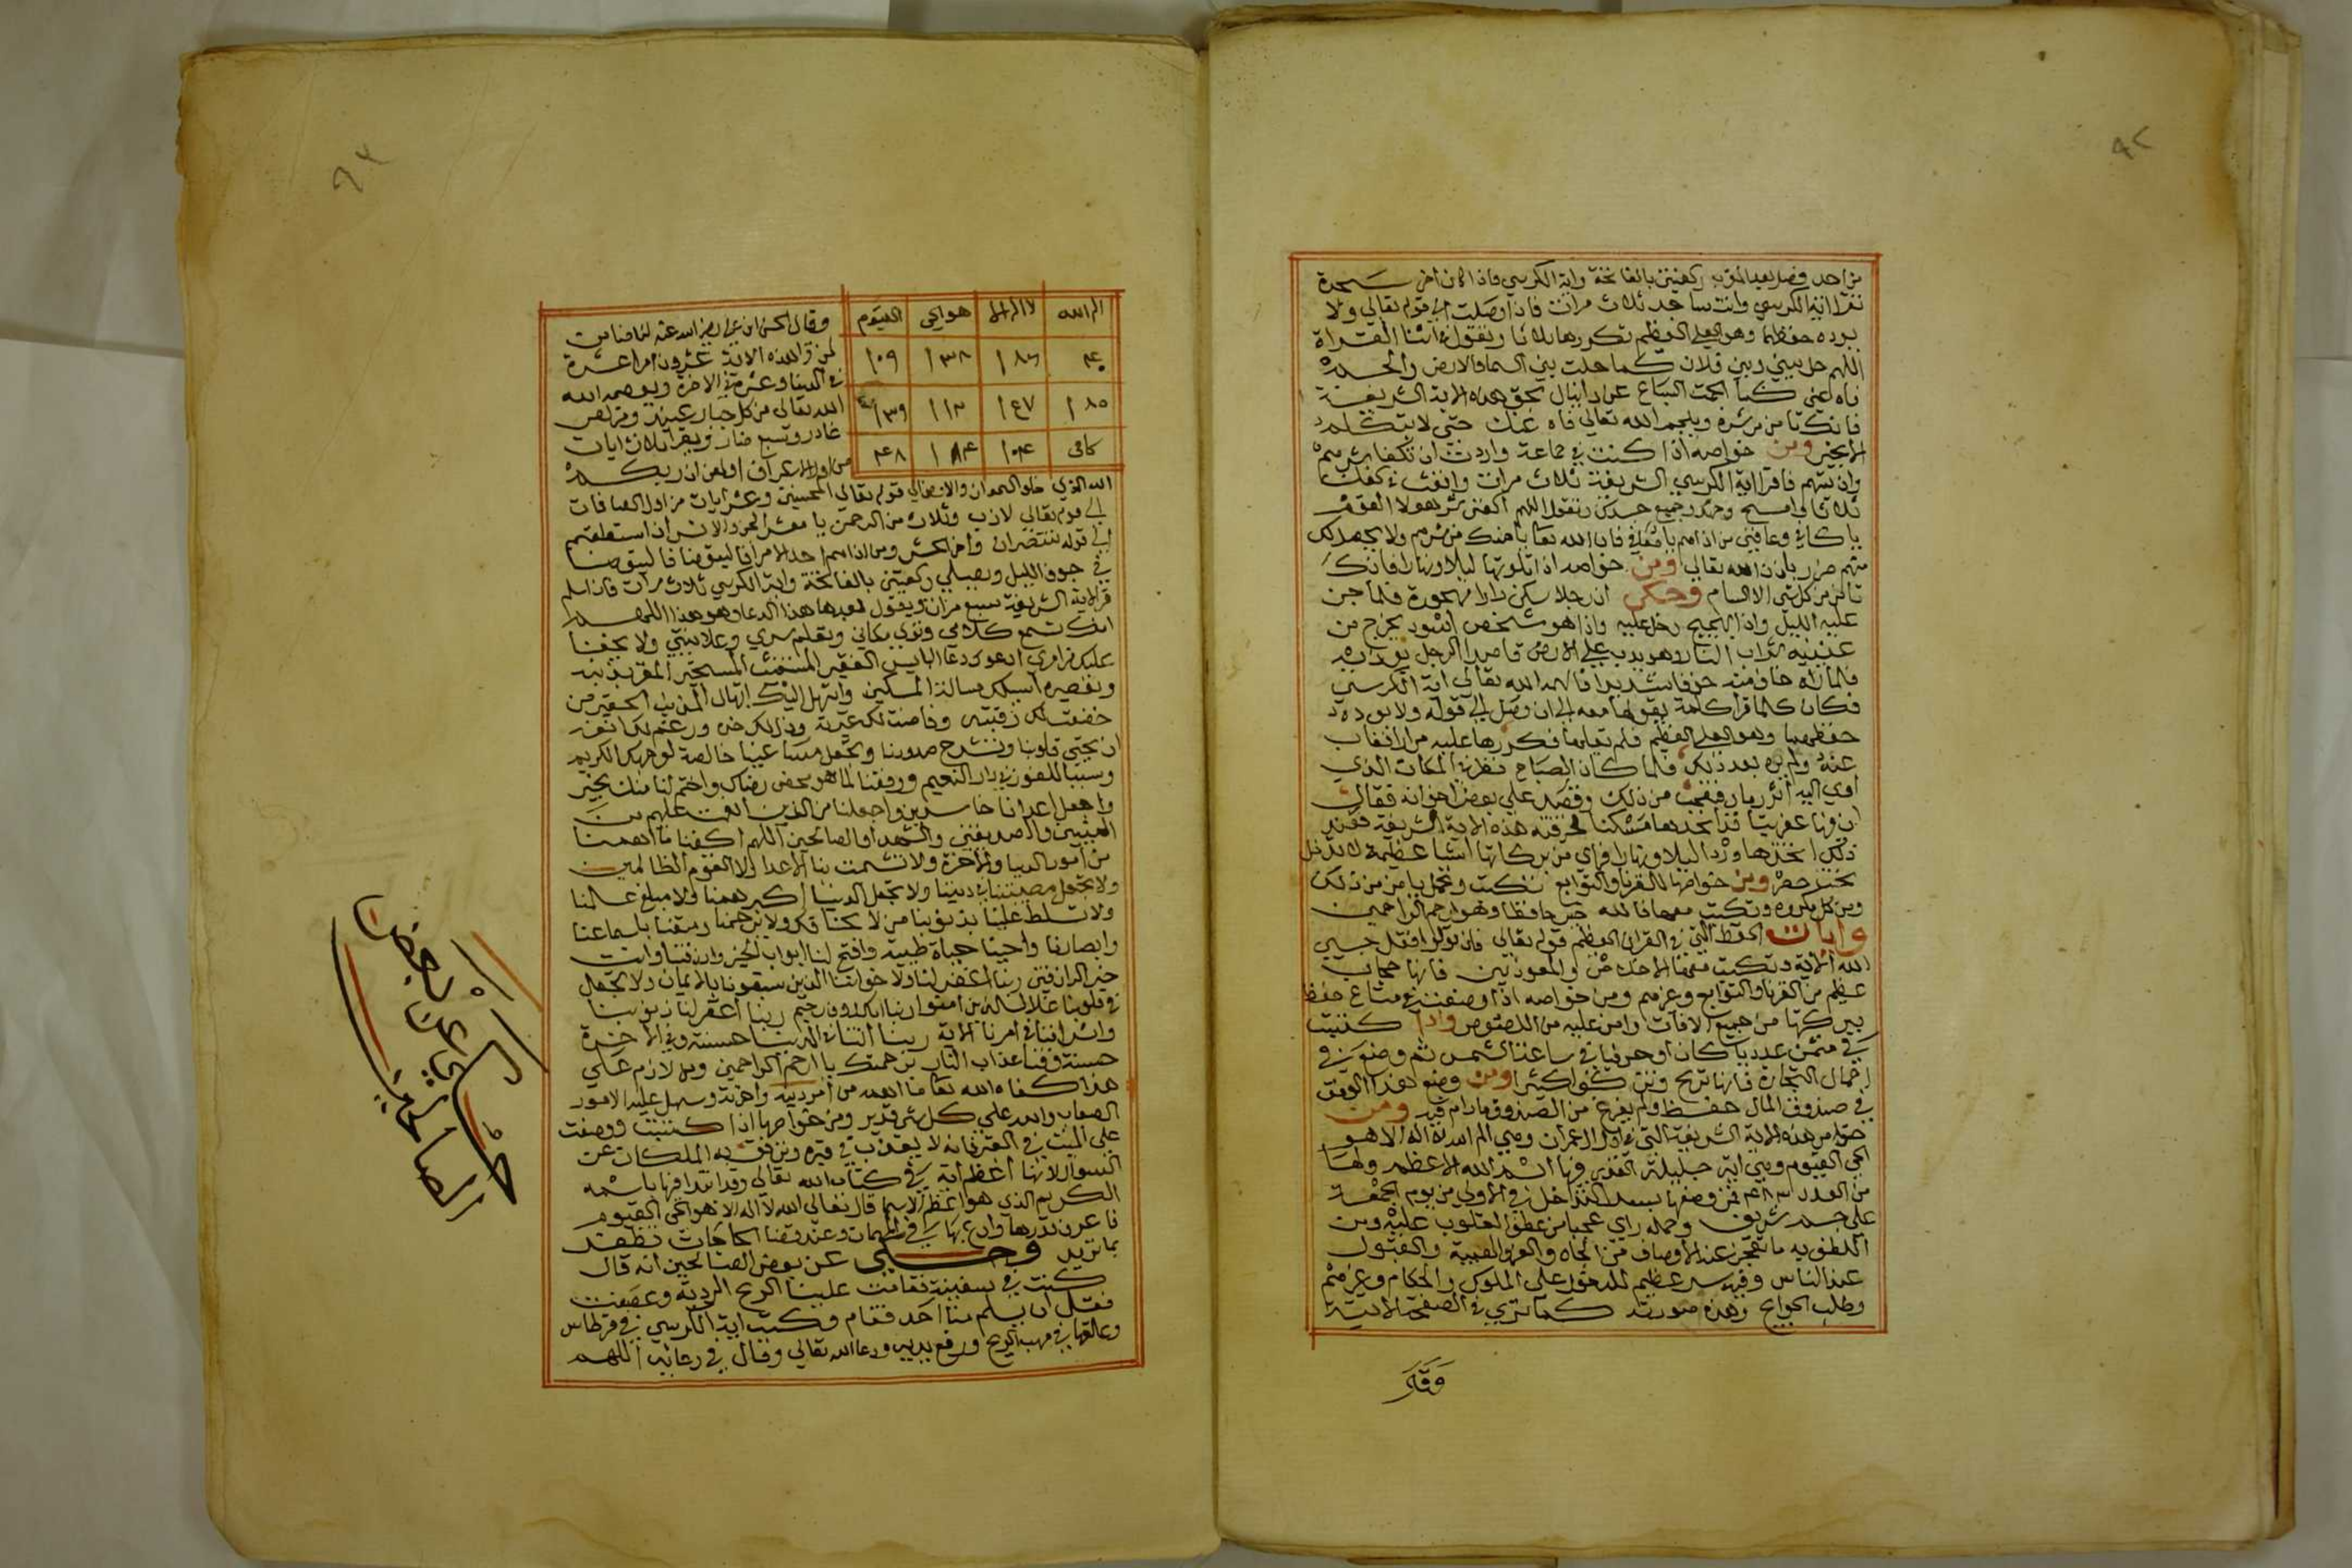 ٩٢
من احد فصل بعد المغرب ركعتين بالفاتحة واية الكرسي فاذا كان اخر سجدة
تقرا اية الكرسي وانت ساجد ثلاث مرات فاذا وصلت الى قوله تعالى ولا
يوده حفظهما وهو العلي العظيم تكررها ثلاثا وتقول في اثنا القراة
اللهم حل بيني وبين فلان كما حلت بين السما والارض والجم
فاه عني كما الجمت السباع عن دانيال بحق هذه الاية الشريفة
فانك تامن من شره ويلجم الله تعالى فاه عنك حتى لا يتكلم
الا بخير ومن خواصه اذا كنت في جماعة واردت ان تكفا شرهم
وان تسهم فاقرا اية الكرسي الشريفة ثلاث مرات وانفث في كفك
ثلاثا وامسح وجهك وجميع جسدك وتقول اللهم اكفني شر هولا القوم
يا كافي وعافني من اذاهم يا معافي فان الله تعا يامنك من شرهم ولا يحصل لك
منهم ضرر باذن الله تعالى ومن خواصه اذا تلوتها ليلا ونهارا فانك
تامن من كل شي الا السام وحكي ان رجلا سكن دارا مهجورة فلما جن
عليه الليل واذا بهجيج دخل عليه واذا هو شخص اسود يخرج من
عينيه لهاب النار وهو يدب على الارض قاصدا الرجل يوذيه
فلما راه خاف منه خوفا شديدا فالهمه الله تعالى اية الكرسي
فكان كلما قرا كلمة يقولها معه الى ان وصل الى قوله ولا يوده
حفظهما وهو العلي العظيم فلم يقلها فكررها عليه مرارا فغاب
عنه ولم يره بعد ذلك فلما كان الصباح نظر في المكان الذي
اوي اليه اثر رماد فتعجب من ذلك وقصد على بعض اخوانه فقال
ان فيها عفريتا قد اتخذها مسكنا فحرقته هذه الاية الشريفة فعند
ذلك اتخذها وردا ليلا ونهارا فراي من بركاتها اشيا عظيمة لا تدخل
تحت حصر ومن خواصها للقرنا والتوابع تكتب وتحمل يامن من ذلك
ومن كل مكروه وتكتب معها فالله خير حافظا وهو ارحم الراحمين
وايات الحفظ التي في القران العظيم قوله تعالى فان تولوا فقل حسبي
الله الاية وتكتب معها الاخلاص والمعوذتين فانها حجاب
عظيم من القرنا والتوابع وغيرهم ومن خواصه اذا وضعت في متاع حفظ
ببركتها من جميع الافات وامن عليه من اللصوص واذا كتبت
في مثمن عدديا كان او حرفيا في ساعة الشمس ثم وضعته في
احمال التجارة فانها تربح وتنمو كثيرا ومن وضع هذا الوفق
في صندوق المال حفظ ولم يفرغ من الصندوق مادام فيه ومن
خواص هذه الاية الشريفة التي في اول ال عمران وهي الم الله لا اله الا هو
الحي القيوم وهي اية جليلة القدر وفيها اسم الله الاعظم ولها
من العدد فمن وضعها بسر التداخل في الاولى من يوم الجمعة
على جسد شريف وحمله راي عجبا من عطف القلوب عليه ومن
اللطف به ما تعجز عنه الاوصاف من الجاه والعز والهيبة والقبول
عند الناس وفيه سر عظيم للدخول على الملوك والحكام وغيرهم
وطلب الحوايج وهذه صورته كما ترى في الصفحة الاتية
وقال
٩٣
الم الله | لا اله الا | هو الحي | القيوم
١٨٥ | ١٤٧
كافى | ١٠٤
وقال الحسن ابن علي رضي الله عنه انا ضامن
لمن قرا هذه الاية عشرون امرا عشرة
في الدنيا وعشرة في الاخرة ويعصمه الله
الله تعالى من كل جبار عنيد ومن لص
غادر وسبع ضار ويقرا ثلاث ايات
من اول الاعراف اولهن ان ربكم
الله الذي خلق السموات والارض الى قوله تعالى المحسنين وعشر ايات من اول الصافات
الى قوله تعالى لازب وثلاث من الرحمن يا معشر الجن والانس ان استطعتم
الى قوله تنتصران واخر الحشر ومن اذا هم احدا امرا فاليتوضا
في جوف الليل ويصلي ركعتين بالفاتحة واية الكرسي ثلاث مرات فاذا سلم
قرا الاية الشريفة سبع مرات ويقول بعدها هذا الدعا وهو هذا اللهم
انك تسمع كلامي وترى مكاني وتعلم سري وعلانيتي ولا يخفا
عليك من امري ادعوك دعا البايس الفقير المستغيث المستجير المقر بذنبه
وتقصيره اسيلك مسالة المسكين وابتهل اليك ابتهال المذنب الحقير من
خضعت لك رقبته وفاضت لك عبرته وذل لك خده ورغم لك انفه
ان تحيي قلوبنا وتشرح صدورنا وتجعل خالصة لوجهك الكريم
وسببا للفوز في دار النعيم ووفقنا لما هو محض رضاك واختم لنا منك بخير
واجعل اعدانا خاسرين واجعلنا من الذين انعمت عليهم من
النبيين والصديقين والشهدا والصالحين اللهم اكفنا ما اهمنا
من امور الدنيا والاخرة ولا تشمت بنا الاعدا ولا القوم الظالمين
ولا تجعل مصيبتنا في ديننا ولا تجعل الدنيا اكبر همنا ولا مبلغ علمنا
ولا تسلط علينا بذنوبنا من لا يخافك ولا يرحمنا ومتعنا باسماعنا
وابصارنا واحينا حياة طيبة وافتح لنا ابواب الخير وارزقنا وانت
خير الرازقين ربنا اغفر لنا ولاخواننا الذين سبقونا بالايمان ولا تجعل
في قلوبنا غلا للذين امنوا ربنا انك روف رحيم ربنا اغفر لنا ذنوبنا
واسرافنا في امرنا الاية ربنا اتنا في الدنيا حسنة وفي الاخرة
حسنة وقنا عذاب النار برحمتك يا ارحم الراحمين ومن لازم على
هذا كفاه الله تعا ما اهمه من امر دينه واخرته وسهل عليه الامور
الصعاب والله على كل شي قدير ومن خواصها اذا كتبت ووضعت
على الميت في القبر فانه لا يعذب في قبره وترفق به الملكان عن
السوال لانها اعظم اية في كتاب الله تعالى وقد ابتدا فيها باسمه
الكريم الذي هو اعظم الاسما قال تعالى الله لا اله الا هو الحي القيوم
فاعرف قدرها وادع بها في المهمات وعند قضا الحاجات تظفر
بما تريد وحكي عن بعض الصالحين انه قال
كنت في سفينة فقامت علينا الريح الردية وعصفت
فقل ان يسلم منا احد فقام وكتب اية الكرسي في قرطاس
وعلقها في مهب الريح ورفع يديه ودعا الله تعالى وقال في دعائه اللهم
حكي عن بعض
الصالحين